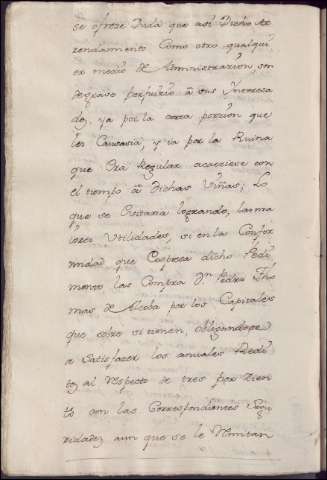 se ofreze Duda que así Dicho Ar
rendamiento Como otro qualqui
er medio de Administrazion, son
de grave perjuizio a sus Interesa
dos. ya por la corta porzion que
les Causaria, y ia por la Ruina
que Era Regular acaeciese con
el tiempo a Dichas Viñas; Lo
que se Evitaria logrando, las ma
iores Utilidades, si en la Confor
midad que Expresa dicho Pedi
mento las Compra Dn Pedro Tho
mas de Alceba por los Capitales
que sobre si tienen, obligandose
a Satisfazer los anuales Redi
tos al Respecto de tres por Zien
to con las Correspondientes Segu
ridades aun que se le Remitan